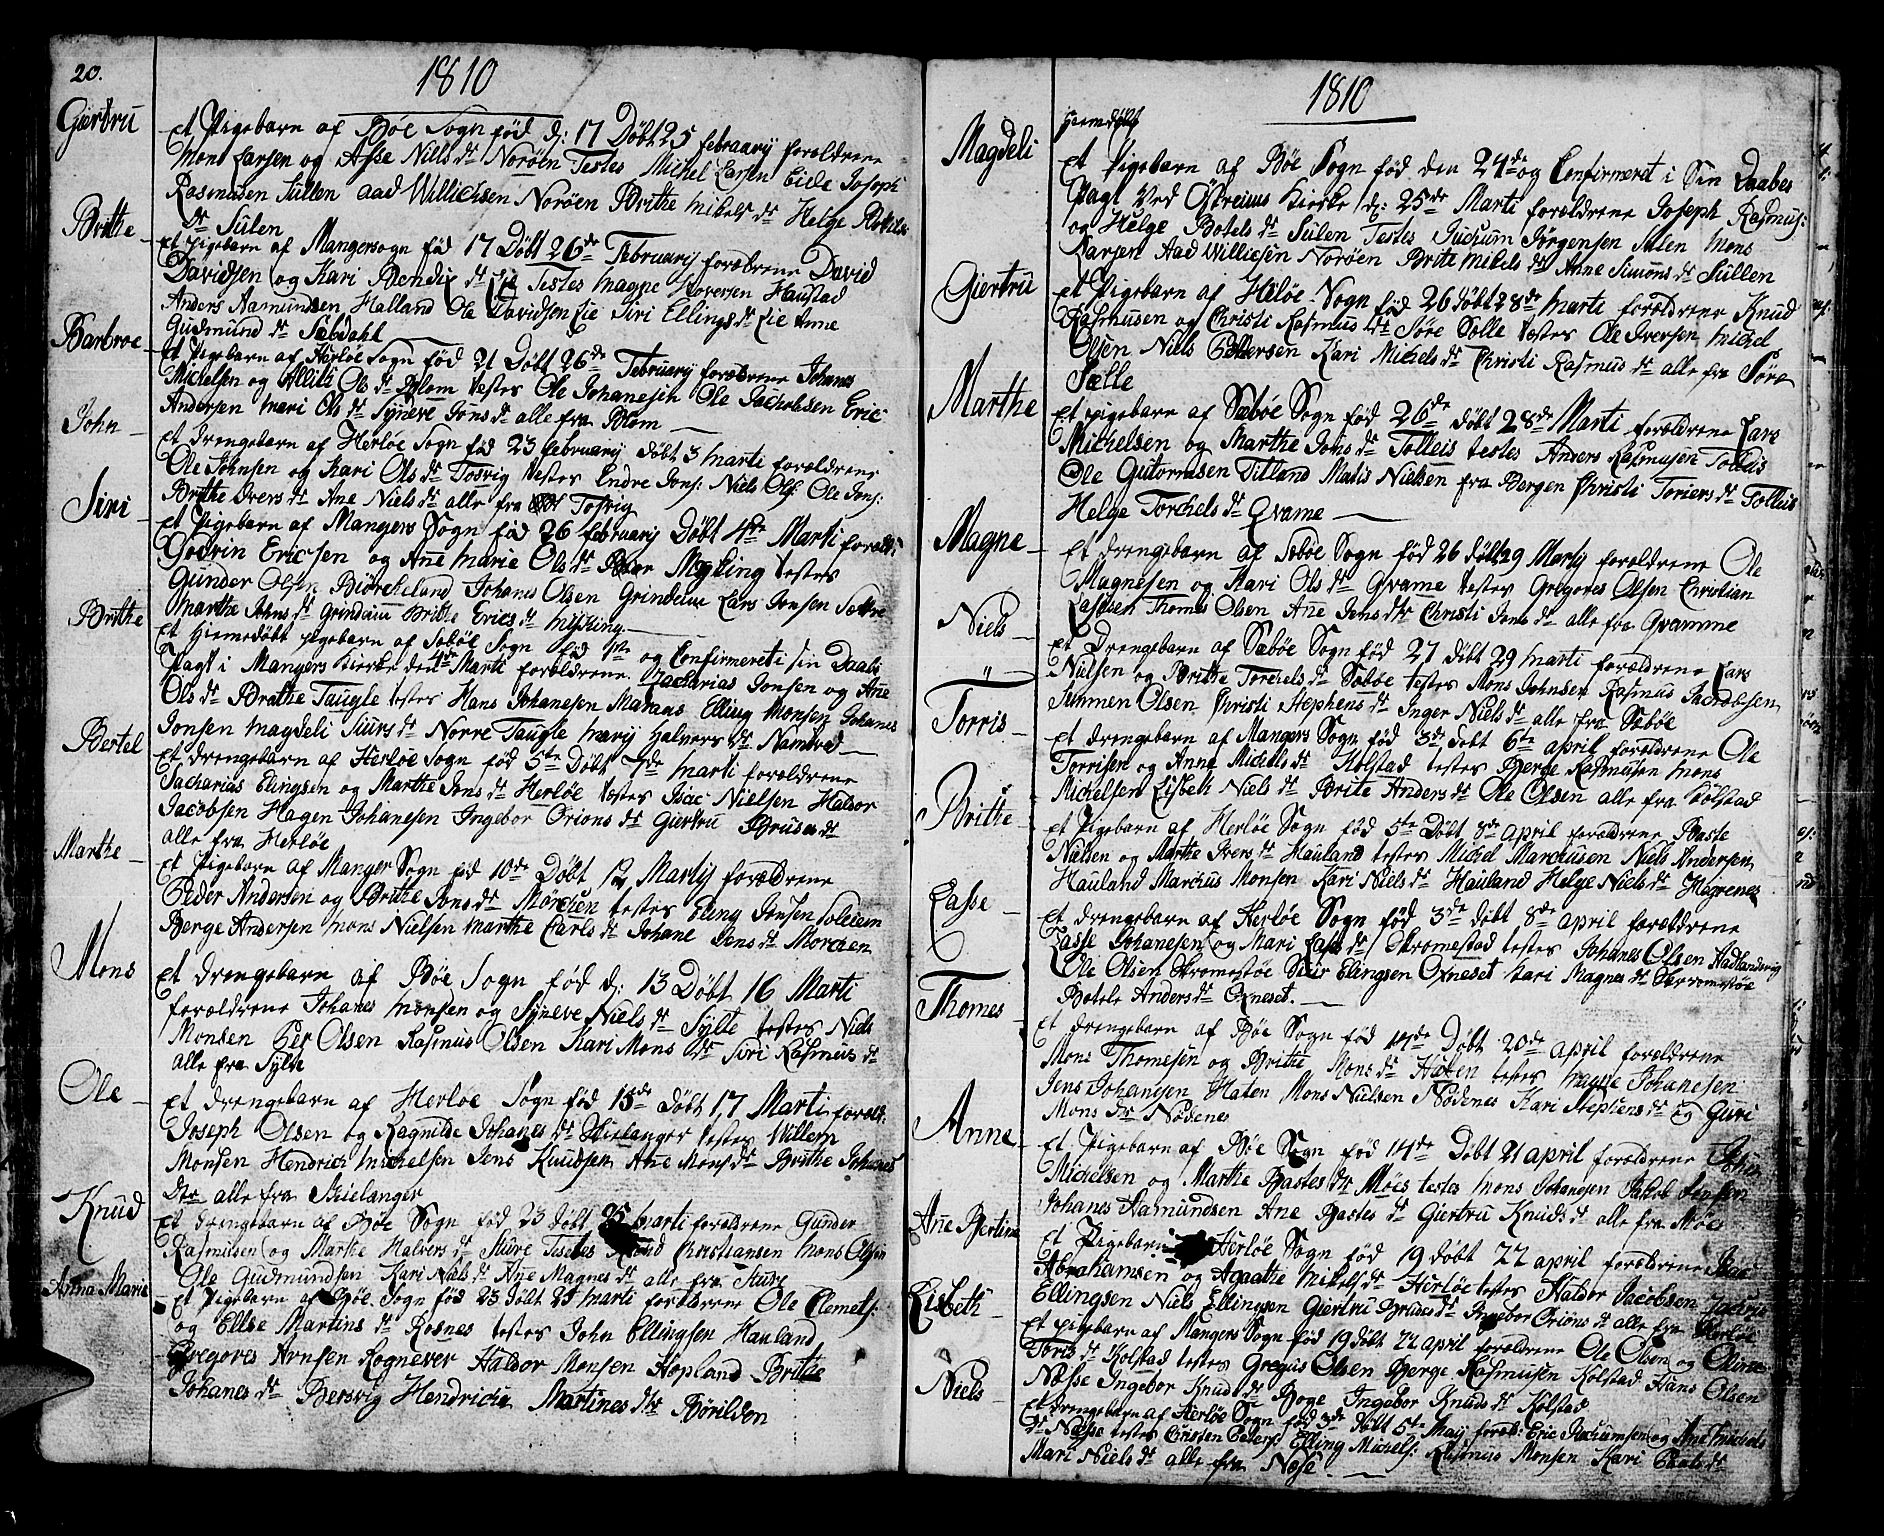 20.
1810
Giertru
Et Pigebarn af Bøe Sogn fød d: 17 Døbt 25 februarij foroldrene
Mons Larsen og Asse Niels dr Norøen Testes Michel Larsen Eide Joseph
Rasmusen Sullen aad Willichsen Norøen Brithe Mikels dr Helge Botels
dr Sulen
Brithe
Et Pigebarn af Mangersogn fød 17 Døbt 26de Februarij foroldrene David
Davidsen og Kari Bendix dr Lie Testes Magne Hoversen Haustad
Anders Aamundsen Halland Ole Davidsen Lie Siri Ellings dr Lie Anne
Gudmund dr Sæbdahl
Barbroe
Et Pigebarn af Herløe Sogn fød 21 Døbt 26de Februarij foroldrene Johanes
Michelsen og Alliti Ols dr Blom testes Ole Johanesen Ole Jachobsen Eric
Andersen Mari Ols dr Syneve Jons dr alle fra Blom
John
Et drengebarn af Herløe Sogn fød 23 februarij døbt 3 Marti foroldrene
Ole Johnsen og Kari Ols dr Tosvig testes Endre Jons: Niels Ols: Ole Jons:
Brithe Ivers dr Ane Niels dr alle fra Tosvig
Siri
Et Pigebarn af Mangers Sogn fød 26 februarij Døbt 4de Marti forold:
Godvin Ericsen og Ane Marie Ols dr Myking testes
Gunder Olsen Biørcheland Johanes Olsen Grindeim Lars Jonsen Sætre
Marthe Johns dr Grindeim Brithe Erics dr Myching
Brithe
Et Hiemedøbt pigebarn af Sebøe Sogn fød 1ste og Confirmeret i sin Daabs
Pagt i Mangers Kierke den 4de Marti foroldrene Zacharias Jonsen og Ane
Ols dr Brathe Taugle testes Hans Johanesen Maraas Elling Monsen Johanes
Jonsen Magdeli Siurs dr Norre Taugle Marij Halvers dr Namtved
Bertel
Et drengebarn af Herløe Sogn fød 5te Døbt 7de Marti foroldrene
Zacharias Elingsen og Marthe Jons dr Herløe testes Isac Nielsen Haldor
Jacobsen Hagen Johanesen Ingebor Orions dr Giertru Bruses dr
alle fra Herløe
Marthe
Et Pigebarn af Manger Sogn fød 10de Døbt 12 Martij foroldrene
Peder Andersen og Brithe Jons dr Mörchen testes Eling Jonsen Soleiem
Berge Andersen Mons Nielsen Marthe Carls dr Johane Jens dr Morchen
Mons
Et drengebarn af Bøe Sogn fød d: 13 Døbt 16 Marti
foroldrene Johanes Monsen og Syneve Niels dr Sylte testes Niels
Monsen Per Olsen Rasmus Olsen Kari Mons dr Siri Rasmus dr
alle fra Sylte
Ole
Et drengebarn af Herløe Sogn fød 15de døbt 17 Marti forold:
Joseph Olsen og Ragnilde Johanes dr Skielanger testes Willem
Monsen Hendrich Michelsen Jens Knudsen Ane Mons dr Brithe Johanes
dtr alle fra Skielanger
Knud
Et drengebarn af Bøe Sogn fød 23 døbt 25 Marti foroldrene Gunder
Rasmusen og Marthe Halvers dr Sture Testes Christiansen Mons Olsen
Ole Gudmundsen Kari Niels dr Ane Magnes dr alle fra Sture
Anna Marie
Et Pigebarn af Bøe Sogn fød 23 døbt 25 Marti foroldrene Ole Clemets:
og Ellse Martins dr Rosnes testes John Ellingsen Hauland
Gregores Arnsen Rognever Haldor Monsen Hopland Brithe
Johanes dr Bersvig Hendricia Martines dtr Børilden
1810
Hiemdøbt
Magdeli
Et Pigebarn af Bøe Sogn fød den 24de og Confirmeret i Sin Daabes
Pagt Ved Kierke d: 25de Marti foroldrene Joseph Rasmus:
og Helge Botels dr Sulen Testes Jochum Jørgensen Sulen Mons
Larsen Aad Willicsen Norøen Brite Mikels dr Anne Simons dr Sullen
Giertru
Et Pigebarn af Herløe Sogn fød 26 døbt 28de Marti foroldrene Knud
Rasmusen og Christi Rasmus dr Søre Sølle testes Ole Iversen Michel
Olsen Niels Pettersen Kari Michels dr Christi Rasmus dr alle fra Søre
Sælle
Marthe
Et pigebarn af Sæbøe Sogn fød 26de døbt 28de Marti foroldrene Lars
Michelsen og Marthe Jons dr Tolleis testes Anders Rasmusen Tolleis
Ole Gutormsen Titland Matis Nielsen fra Bergen Christi Toriers dr Tolleis
Helge Torchels dr Qvame
Magne
Et drengebarn af Sebøe Sogn fød 26 døbt 29 Martij foroldrene Ole
Magnesen og Kari Ols dr Qvame testes Gregores Olsen Christian
Lassesen Thomes Olsen Ane Jens dtr Christi Jens dr alle fra Qvamme
Niels
Et Drengebarn af Sæbøe Sogn fød 27 døbt 29 Marti foroldrene Lars
Nielsen og Brithe Torchels dr Sæbøe testes Mons Johnsen Rasmus Jacobsen
Simmen Olsen Christi Stephens dr Inger Niels dr alle fra Sæbøe
Torris
Et drengebarn af Mangers Sogn fød 3de døbt 6te april foroldrene Ole
Torrisen og Anna Michels dr Kolstad testes Berge Rasmusen Mons
Michelsen Lisbeth Niels dr Brite Anders dr Ole Olsen alle fra Kolstad
Brithe
Et Pigebarn af Herløe Sogn fød 5te Døbt 8de april foroldrene Baste
Nielsen og Marthe Ivers dr Hauland testes Michel Marchusen Niels Andersen
Hauland Marchus Monsen Kari Niels dr Hauland Helge Niels dr Hagenes
Lasse
Et drengebarn af Herløe Sogn fød 3de døbt 8de april foroldrene
Lasse Johanesen og Mari Lass dr Skromestad testes Johanes Olsen Hadlandsvig
Ole Olsen Skromestøe Siur Elingsen Oxneset Kari Magnes dr Skromestøe
Botele Anders dr Oxneset.
Thomes
Et drengebarn af Bøe Sogn fød 17de Døbt 20de april foroldrene
Mons Thomesen og Brithe Mons dr Haten testes Magne Johanesen
Jens Johansen Haten Mons Nielsen Nødenes Kari Stephens dr og Guri
Mons dr Nødenes
Anne
Et Pigebarn af Bøe Sogn fød 14de Døbt 21 april foroldrene
Michelsen og Marthe Bastes dr Møes testes Mons Johanesen Jakob Jensen
Johanes Aamundsen Ane Bastes dr Giertru Knuds dr alle fra Møes
Ane Bertine
Et Pigebarn Herløe Sogn fød 19 døbt 22 april foroldrene Isac
Abrahamsen og Agaathe Mikels dr Herløe testes Haldor Jacobsen
Ellingsen Niels Ellingsen Giertru Bruses dr Ingebor Orions dr alle fra Herløe
Lisbeth
Et pigebarn af Mangers Sogn fød 19 døbt 22 april foroldrene Ole Olsen og
Toris dr Kolstad testes Gregus Olsen Berge Rasmusen Kolstad Hans Olsen
Næsse Ingebor Knuds dr Boge Ingebor Knuds dr Kolstad
Niels
Et drengebarn af Herløe Sogn fød 3de døbt 5te Maij forold: Eric Jochumsen og Ane Michels
dr Næsse testes Christen Peders: Elling Michels: Rasmus Monsen Kari Pauls dr
Mari Niels dr alle fra Næse